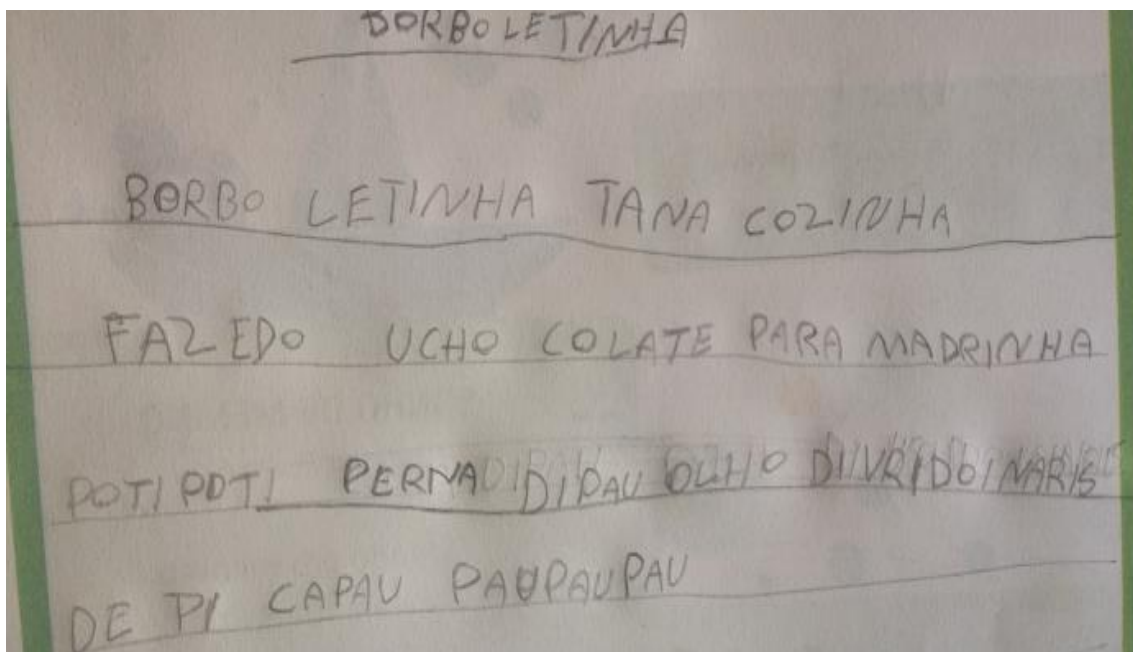 BORBOLETINHA
BORBO LETINHA TANA COZINHA
FAZEDO UCHO COLATE PARA MADRINHA
POTI POTI PERNA DIPAU OLHO DIVRIDOI NARIS
DE PI CAPAU PAUPAUPAU